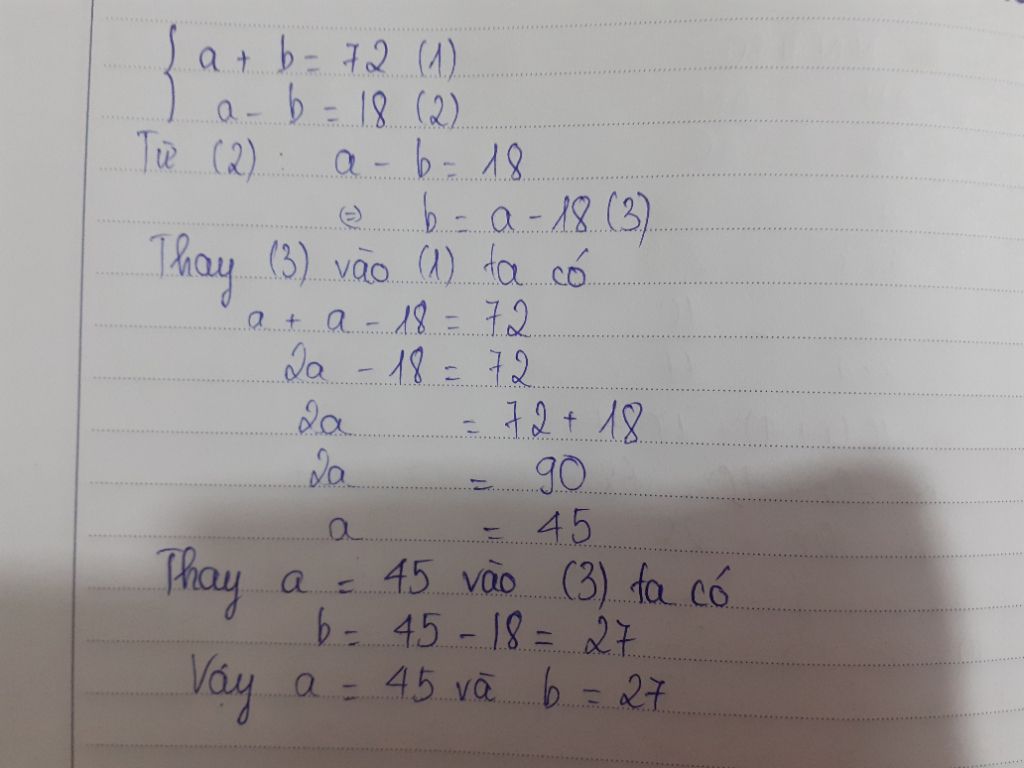 { a + b = 72 (1)
a - b = 18 (2)
Từ (2) : a - b = 18
⇔ b = a - 18 (3)
Thay (3) vào (1) ta có
a + a - 18 = 72
2a - 18 = 72
2a = 72 + 18
2a = 90
a = 45
Thay a = 45 vào (3) ta có
b = 45 - 18 = 27
Vậy a = 45 và b = 27